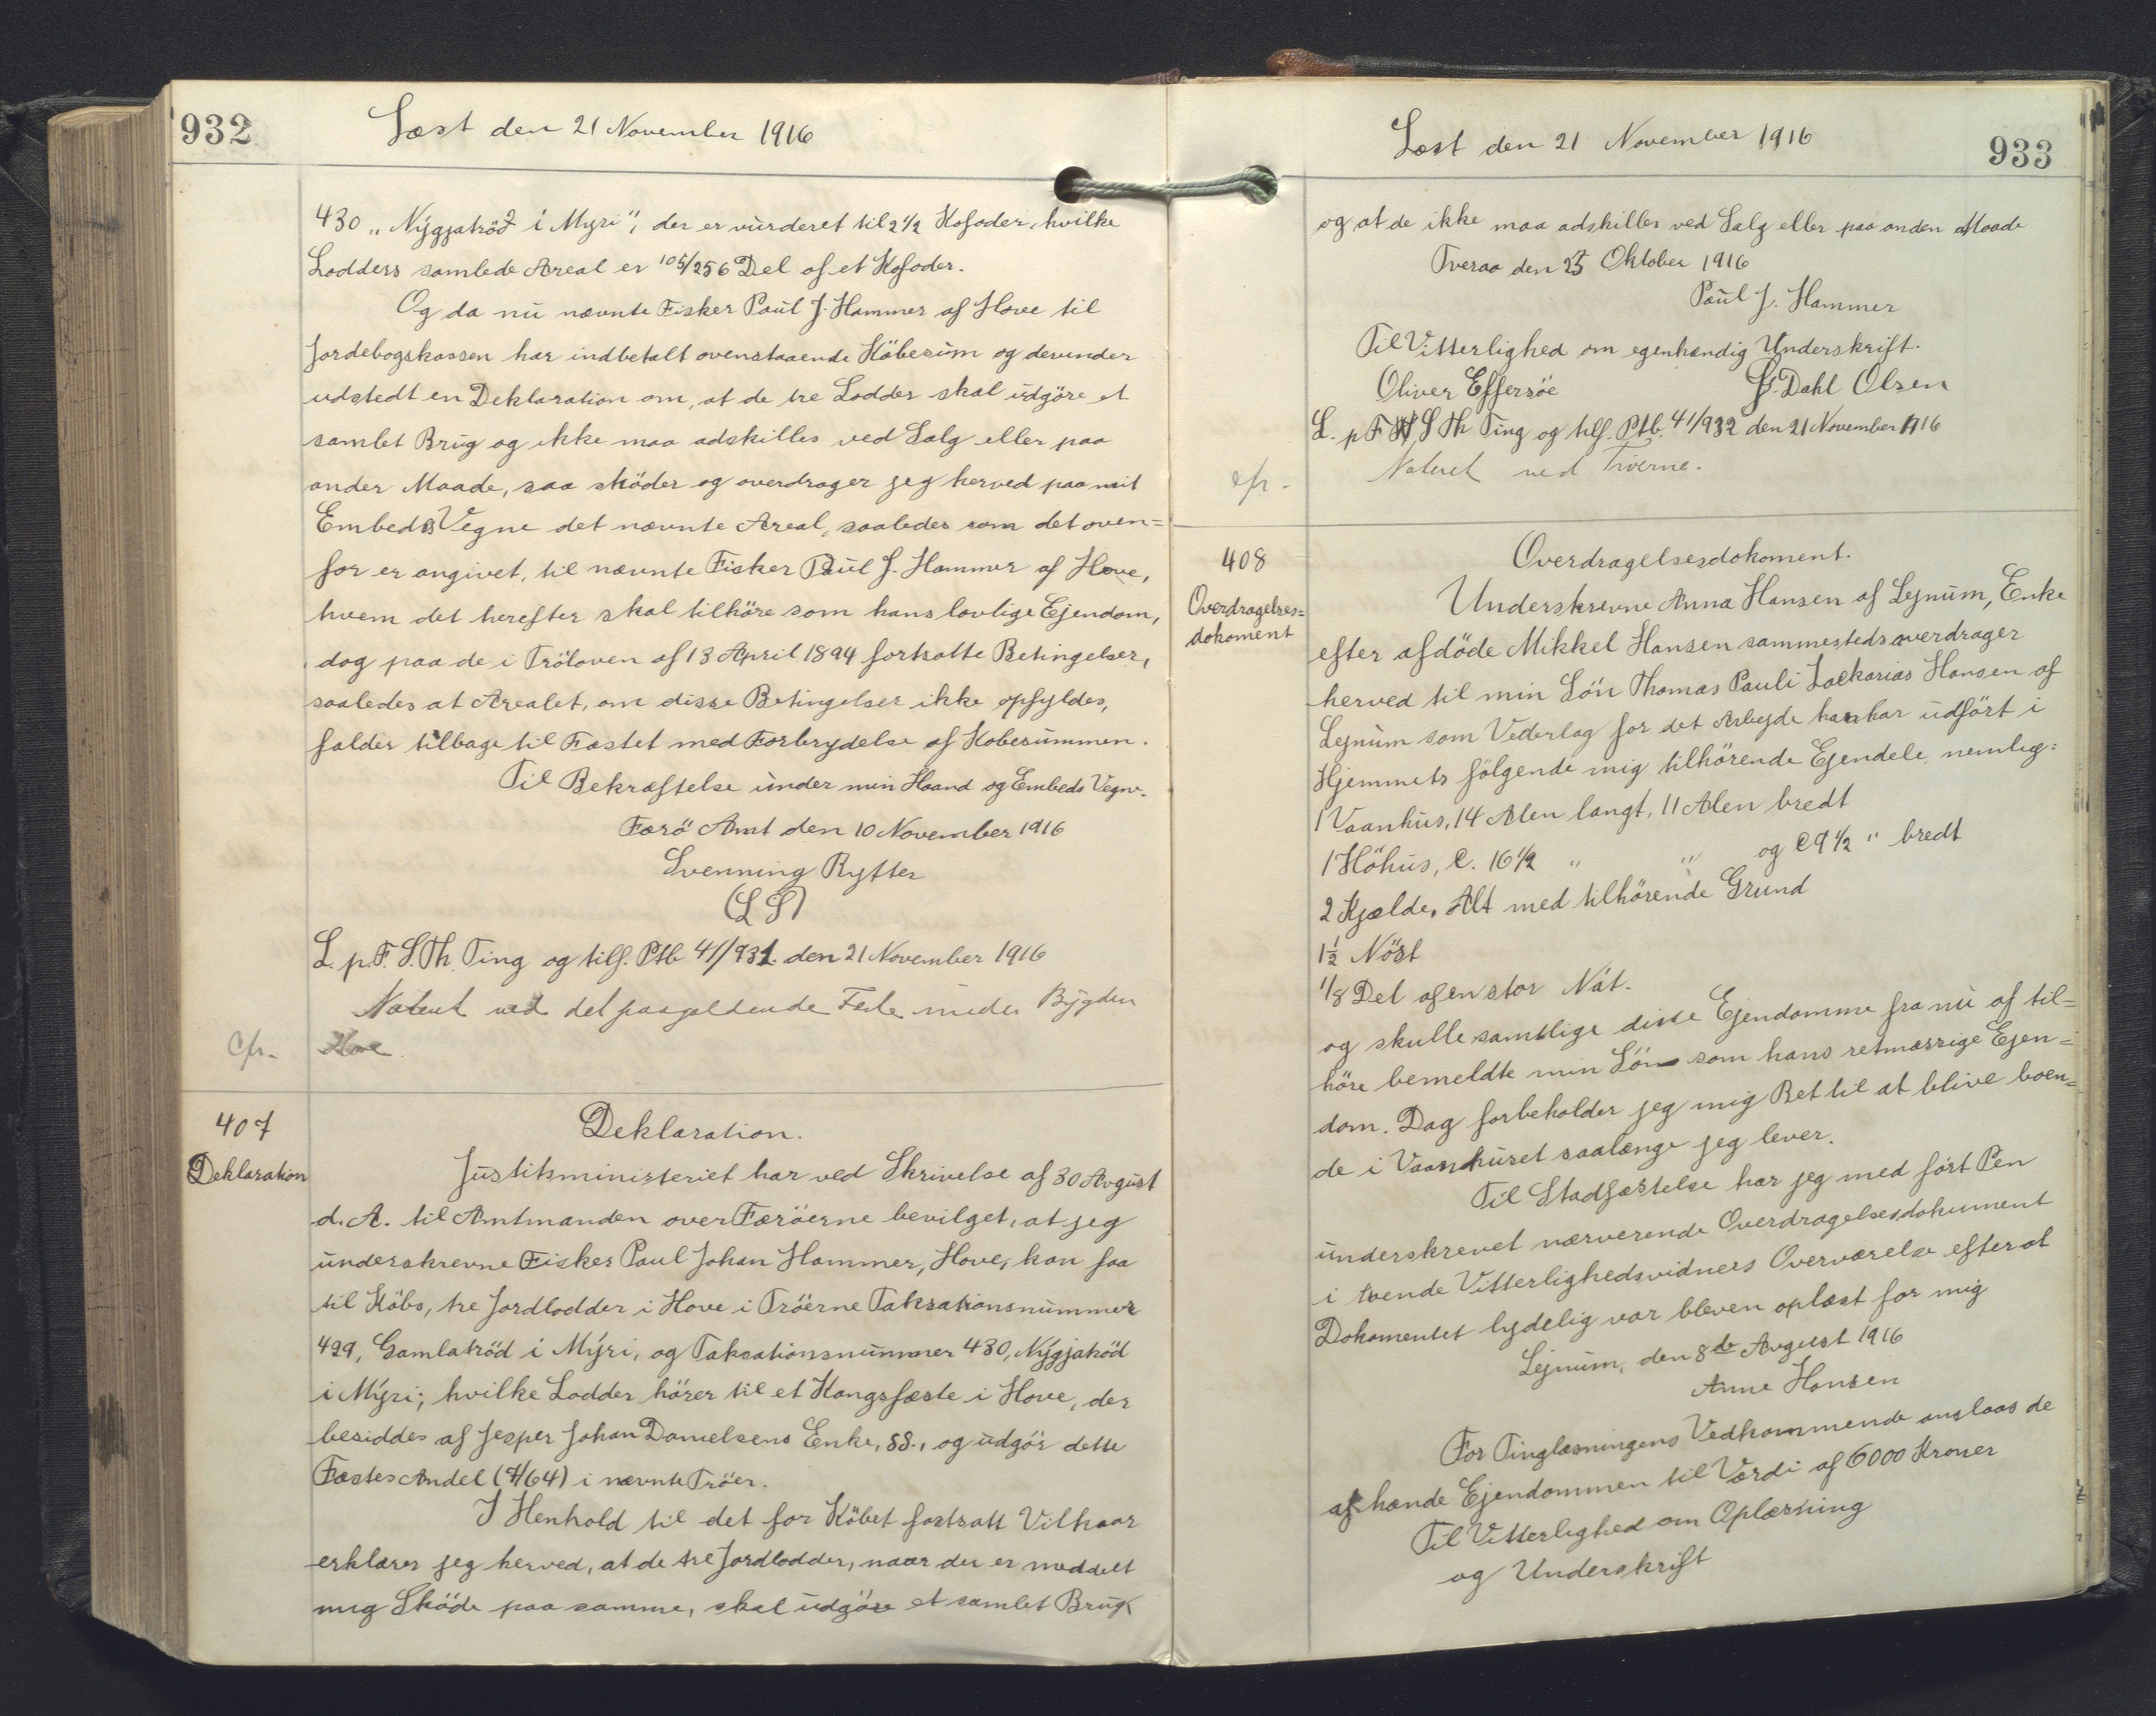 932
Læst den 21 November 1916
430 „Nýggjatröð i Myri", der er vurderet til 2 1/2 Kofoder, hvilke
Lodders samlede Areal er 105/256 Del af et Kofoder.
Og da nu nævnte Fisker Paul J. Hammer af Hove til
Jordebogskassen har indbetalt ovenstaaende Köbesum og derunder
udstedt en Deklaration om, at de tre Lodder skal udgöre et
samlet Brug og ikke maa adskilles ved Salg eller paa
anden Maade, saa sköder og overdrager jeg herved paa mit
Embeds Vegne det nævnte Areal, saaledes som det oven=
for er angivet, til nævnte Fisker Paul J. Hammer af Hove,
hvem det herefter skal tilhöre som hans lovlige Ejendom,
dog paa de i Tröloven af 13 April 1894 fortsatte Betingelser,
saaledes at Arealet, om disse Betingelser ikke opfyldes,
falder tilbage til Fæstet med Forbrydelse af Kobesummen.
Til Bekræftelse under min Haand og Embeds Vegne.
Færö Amt den 10 November 1916
Svenning Rytter
(L S)
L. p. F. S. Th. Ting og tilf. Ptb 41/931. den 21 November 1916
Noteret ved det paagældende Feste under Bygden
Cfr. Hove
407
Deklaration
Deklaration.
Justitsministeriet har ved Skrivelse af 30 Avgust
d. A. til Amtmanden over Færöerne bevilget, at jeg
underskrevne Fisker Paul Johan Hammer, Hove, kan faa
til Köbs, tre Jordlodder i Hove i Tröerne Taksationsnummer
429, Gamlatröd i Mýri, og Taksationsnummer 430, Nýgjatröd
i Mýri; hvilke Lodder hörer til et Kongsfæste i Hove, der
besiddes af Jesper Johan Danielsens Enke, SS., og udgör dette
Fæstes Andel (7/64) i nævnte Tröer.
I Henhold til det for Köbet fastsatt Vilkaar
erklærer jeg herved, at de tre Jordlodder, naar der er meddelt
mig Sköde paa samme, skal udgöre et samlet Brug
Læst den 21 November 1916
933
og at de ikke maa adskilles ved Salg eller paa anden Maade
Tveraa den 25 Oktober 1916
Paul J. Hammer
Til Vitterlighed om egenhændig Underskrift.
Oliver Effersöe J. Dahl Olsen
L. p F S Th Ting og tilf. Ptb. 41/932 den 21 November 1916
cfr. Noteret ved Tröerne.
408
Overdragelses=
dokoment
Overdragelsesdokoment.
Underskrevne Anna Hansen af Lejnum, Enke
efter afdöde Mikkel Hansen sammesteds overdrager
herved til min Sön Thomas Pauli Zackarias Hansen af
Lejnum som Vederlag for det Arbejde han har udfört i
Hjemmets fölgende mig tilhörende Ejendele nemlig:
1 Vaanhus, 14 Alen langt, 11 Alen bredt
1 Höhus, C. 16 1/2 " " og C 9 1/2 " bredt
2 Kjælder, Alt med tilhörende Grund
1 1/2 Nöst
1/8 Del af en stor Nót.
og skulle samtlige disse Ejendomme fra nu af til=
höre bemeldte min Sön som hans retmæssige Ejen=
dom. Dog forbeholder jeg mig Ret til at blive boen=
de i Vaanhuset saalænge jeg lever.
Til Stadfæstelse har jeg med fört Pen
underskrevet nærverende Overdragelsesdokument
i tvende Vitterlighedsvidners Overværelse efter at
Dokomentet lydelig var bleven oplæst for mig
Lejnum, den 8de Avgust 1916
Anne Hansen
For Tinglæsningens Vedkommende anslaas de
afhænde Ejendommen til Værdi af 6000 Kroner
Til Vitterlighed om Oplæsning
og Underskrift